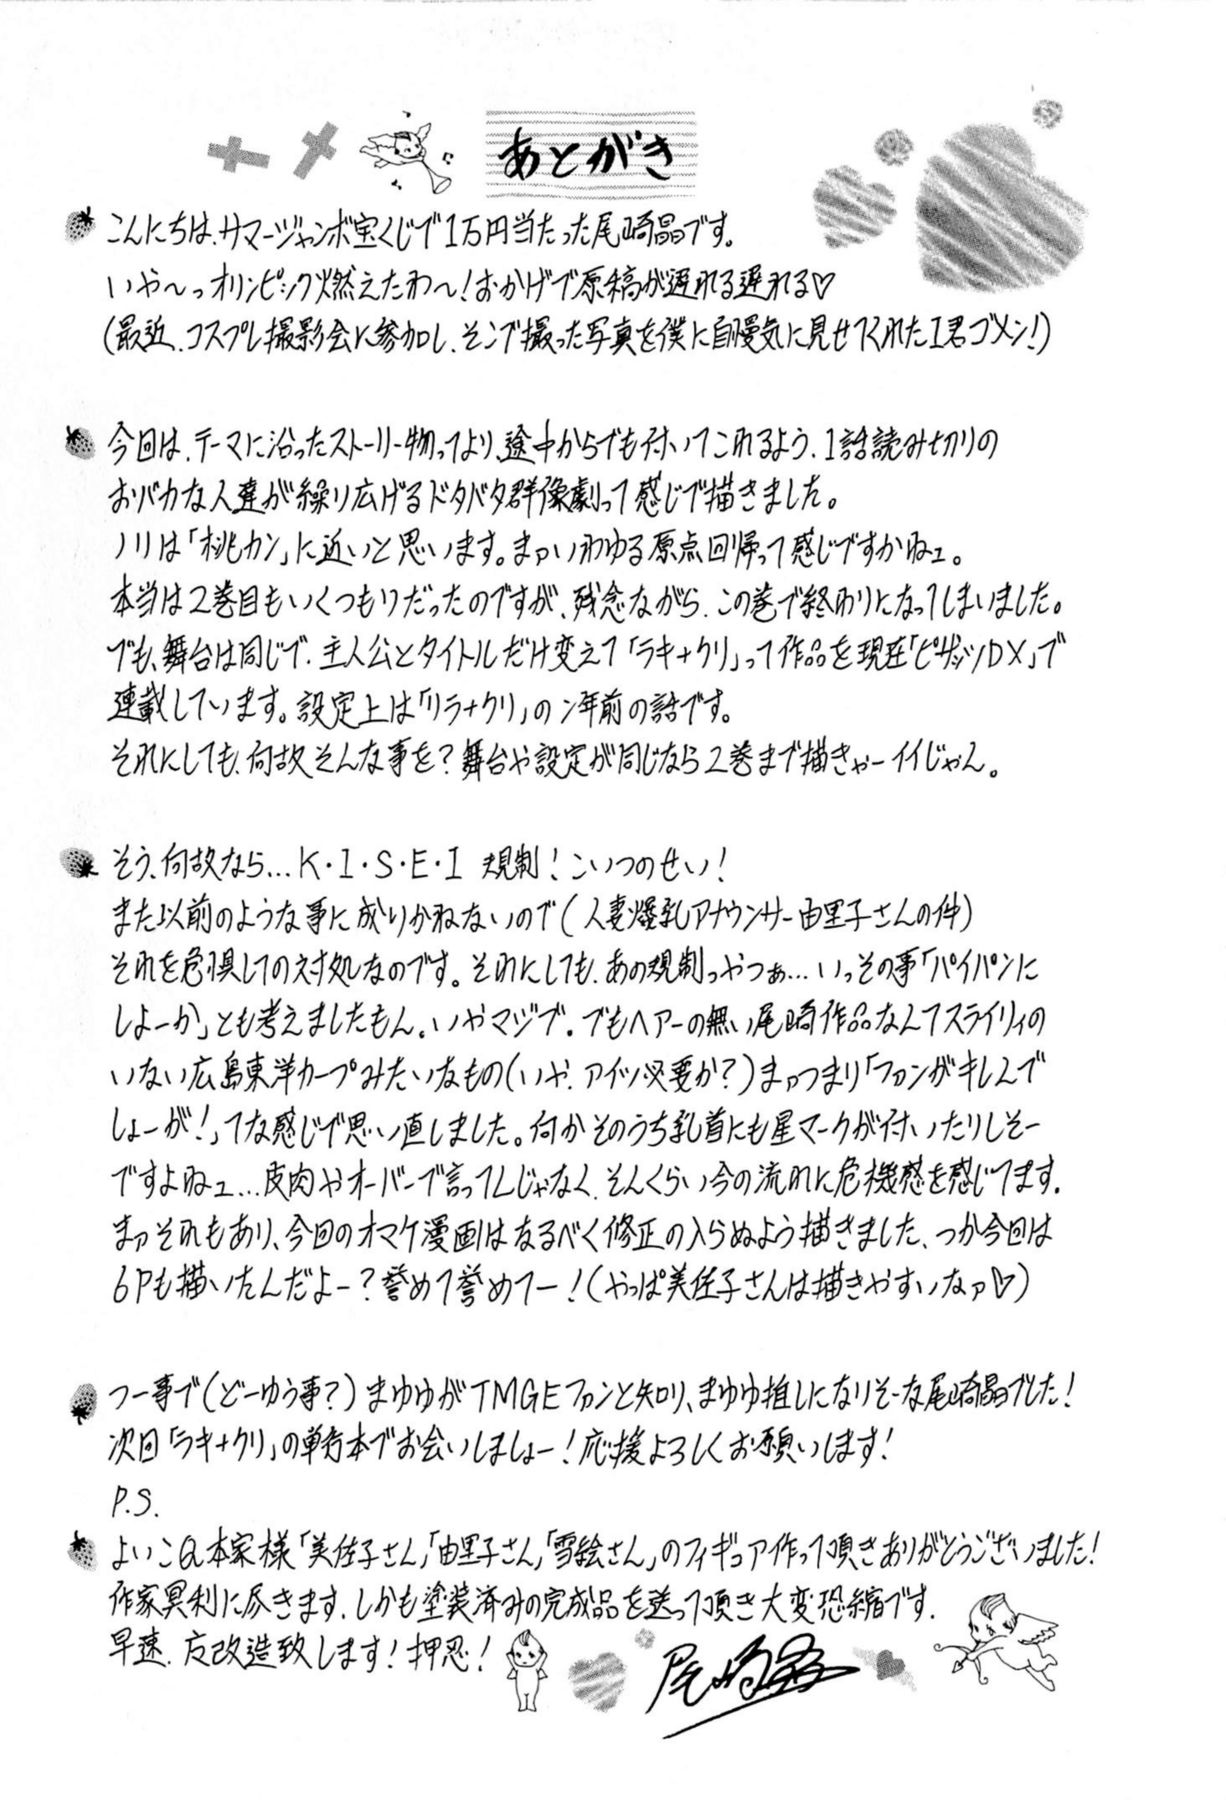 あとがき
こんにちは、サマージャンボ宝くじで1万円当たった尾崎晶です。
いや〜っオリンピック燃えたわ〜!おかげで原稿が遅れる遅れる♡
(最近、コスプレ撮影会に参加し、そこで撮った写真を僕に自慢気に見せてくれたI君ゴメン!)
今回は、テーマに沿ったストーリー物ってより、途中からでも付いてこれるよう、1話読み切りの
おバカな人達が繰り広げるドタバタ群像劇って感じで描きました。
ノリは「桃カン」に近いと思います。まァいわゆる原点回帰って感じですかねェ。
本当は2巻目もいくつもりだったのですが、残念ながら、この巻で終わりになってしまいました。
でも、舞台は同じで、主人公とタイトルだけ変えて「ラキ+クリ」って作品を現在「ピザッツDX」で
連載しています。設定上は「リラ+クリ」の2年前の話です。
それにしても、何故そんな事を?舞台や設定が同じなら2巻まで描きゃーイイじゃん。
そう、何故なら…K・I・S・E・I 規制!こいつのせい!
また以前のような事に成りかねないので(人妻爆乳アナウンサー由里子さんの件)
それを危惧しての対処なのです。それにしても、あの規制っやつぁ…いっその事「パイパンに
しよーか」とも考えましたもん。いやマジで。でもヘアーの無い尾崎作品なんてスライリィの
いない広島東洋カープみたいなもの(いや、アイツ必要か?)まァつまり「ファンがキレんで
しょーが!」てな感じで思い直しました。何かそのうち乳首にも星マークが付いたりしそー
ですよねェ…皮肉やオーバーで言ってんじゃなく、そんくらい今の流れに危機感を感じてます。
まァそれもあり、今回のオマケ漫画はなるべく修正の入らぬよう描きました、つか今回は
6Pも描いたんだよー?誉めて誉めてー!(やっぱ美佐子さんは描きやすいなァ♡)
つー事で(どーゆう事?)まゆゆがTMGEファンと知り、まゆゆ推しになりそーな尾崎晶でした!
次回「ラキ+クリ」の単行本でお会いしましょー!応援よろしくお願いします!
P.S.
よいこ@本家様「美佐子さん」「由里子さん」「雪絵さん」のフィギュア作って頂きありがとうございました!
作家冥利に尽きます、しかも塗装済みの完成品を送って頂き大変恐縮です。
早速、応改造致します!押忍!
尾崎晶